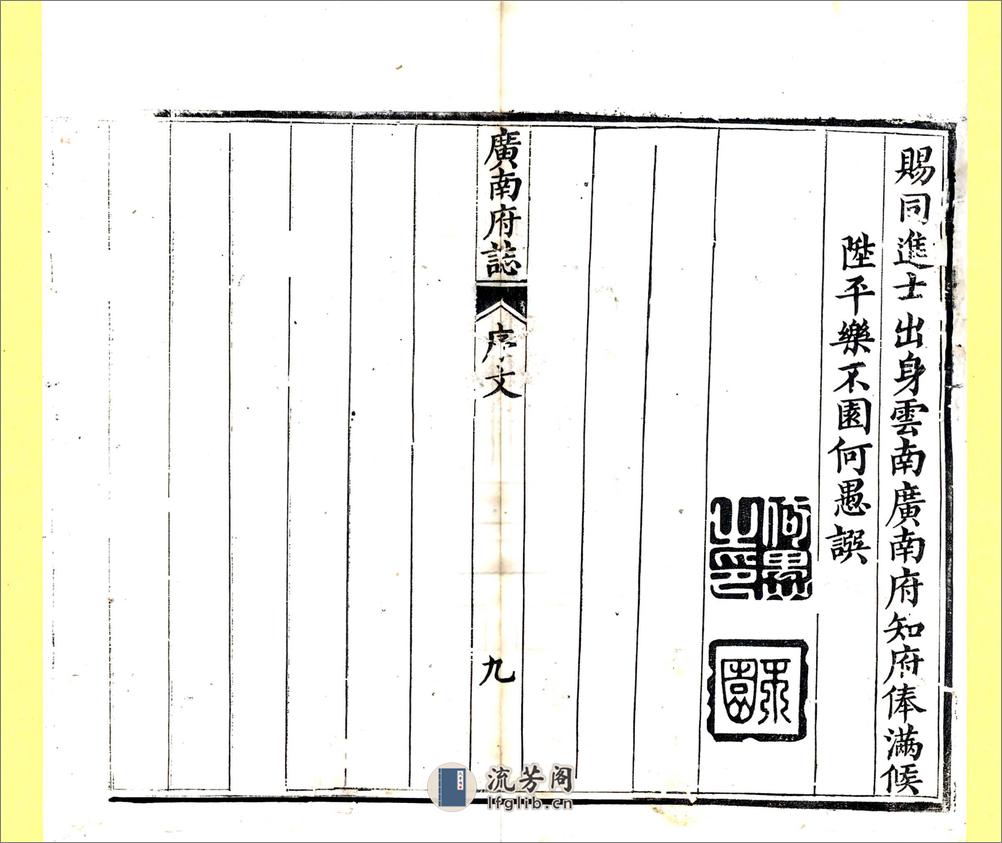 賜同進士出身雲南廣南府知府俸滿候
陞平樂禾園何愚譔
何愚之印
禾園
廣南府誌
序文
九
流芳阁
lfglib.cn